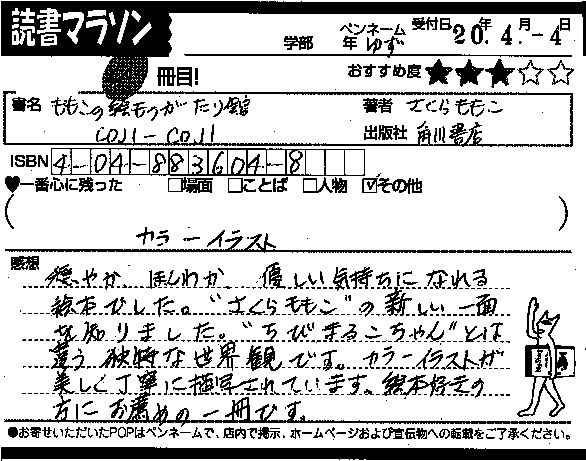 読書マラソン
学部 年 ペンネーム ゆず 受付日 20年 4月-4日
冊目! おすすめ度 ★★★☆☆
書名 ももこの絵ものがたり館 著者 さくらももこ
COJI-COJI 出版社 角川書店
ISBN 4-04-883604-8
♥一番心に残った □場面 □ことば □人物 ☑その他
( カラーイラスト )
感想
穏やか、ほんわか、優しい気持ちになれる
絵本でした。"さくらももこ"の新しい一面
を知りました。"ちびまるこちゃん"とは
違う 独特な世界観です。カラーイラストが
美しく丁寧に描写されています。絵本好きの
方にお薦めの一冊です。
●お寄せいただいたPOPはペンネームで、店内で掲示、ホームページおよび宣伝物への転載をご了承ください。